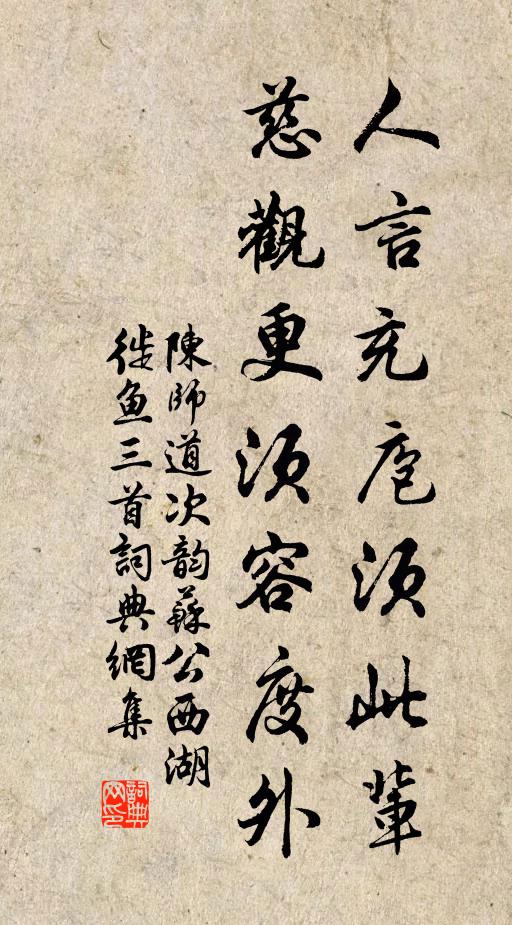 人言充庖須此輩
慈觀更須容度外
陳師道次韵蘇公西湖
徙魚三首詞典網集
詞典网印